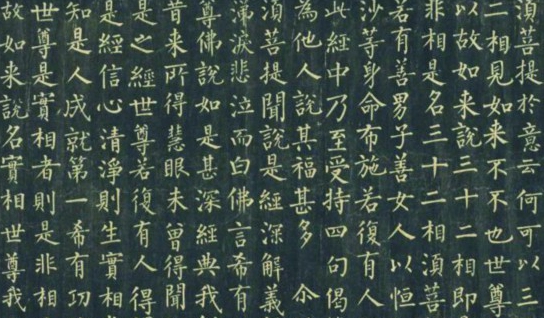 須菩提於意云何可以三
二相見如來不不也世尊
以故如來說三十二相即
非相是名三十二相須菩
若有善男子善女人以恒
沙等身命布施若復有人
此經中乃至受持四句偈
為他人說其福甚多　尒
須菩提聞說是經深解義
涕淚悲泣而白佛言希有
尊佛說如是甚深經典我
昔來所得慧眼未曾得聞
是之經世尊若復有人得
是經信心清淨則生實相
知是人成就第一希有功
世尊是實相者則是非相
故如來說名實相世尊我